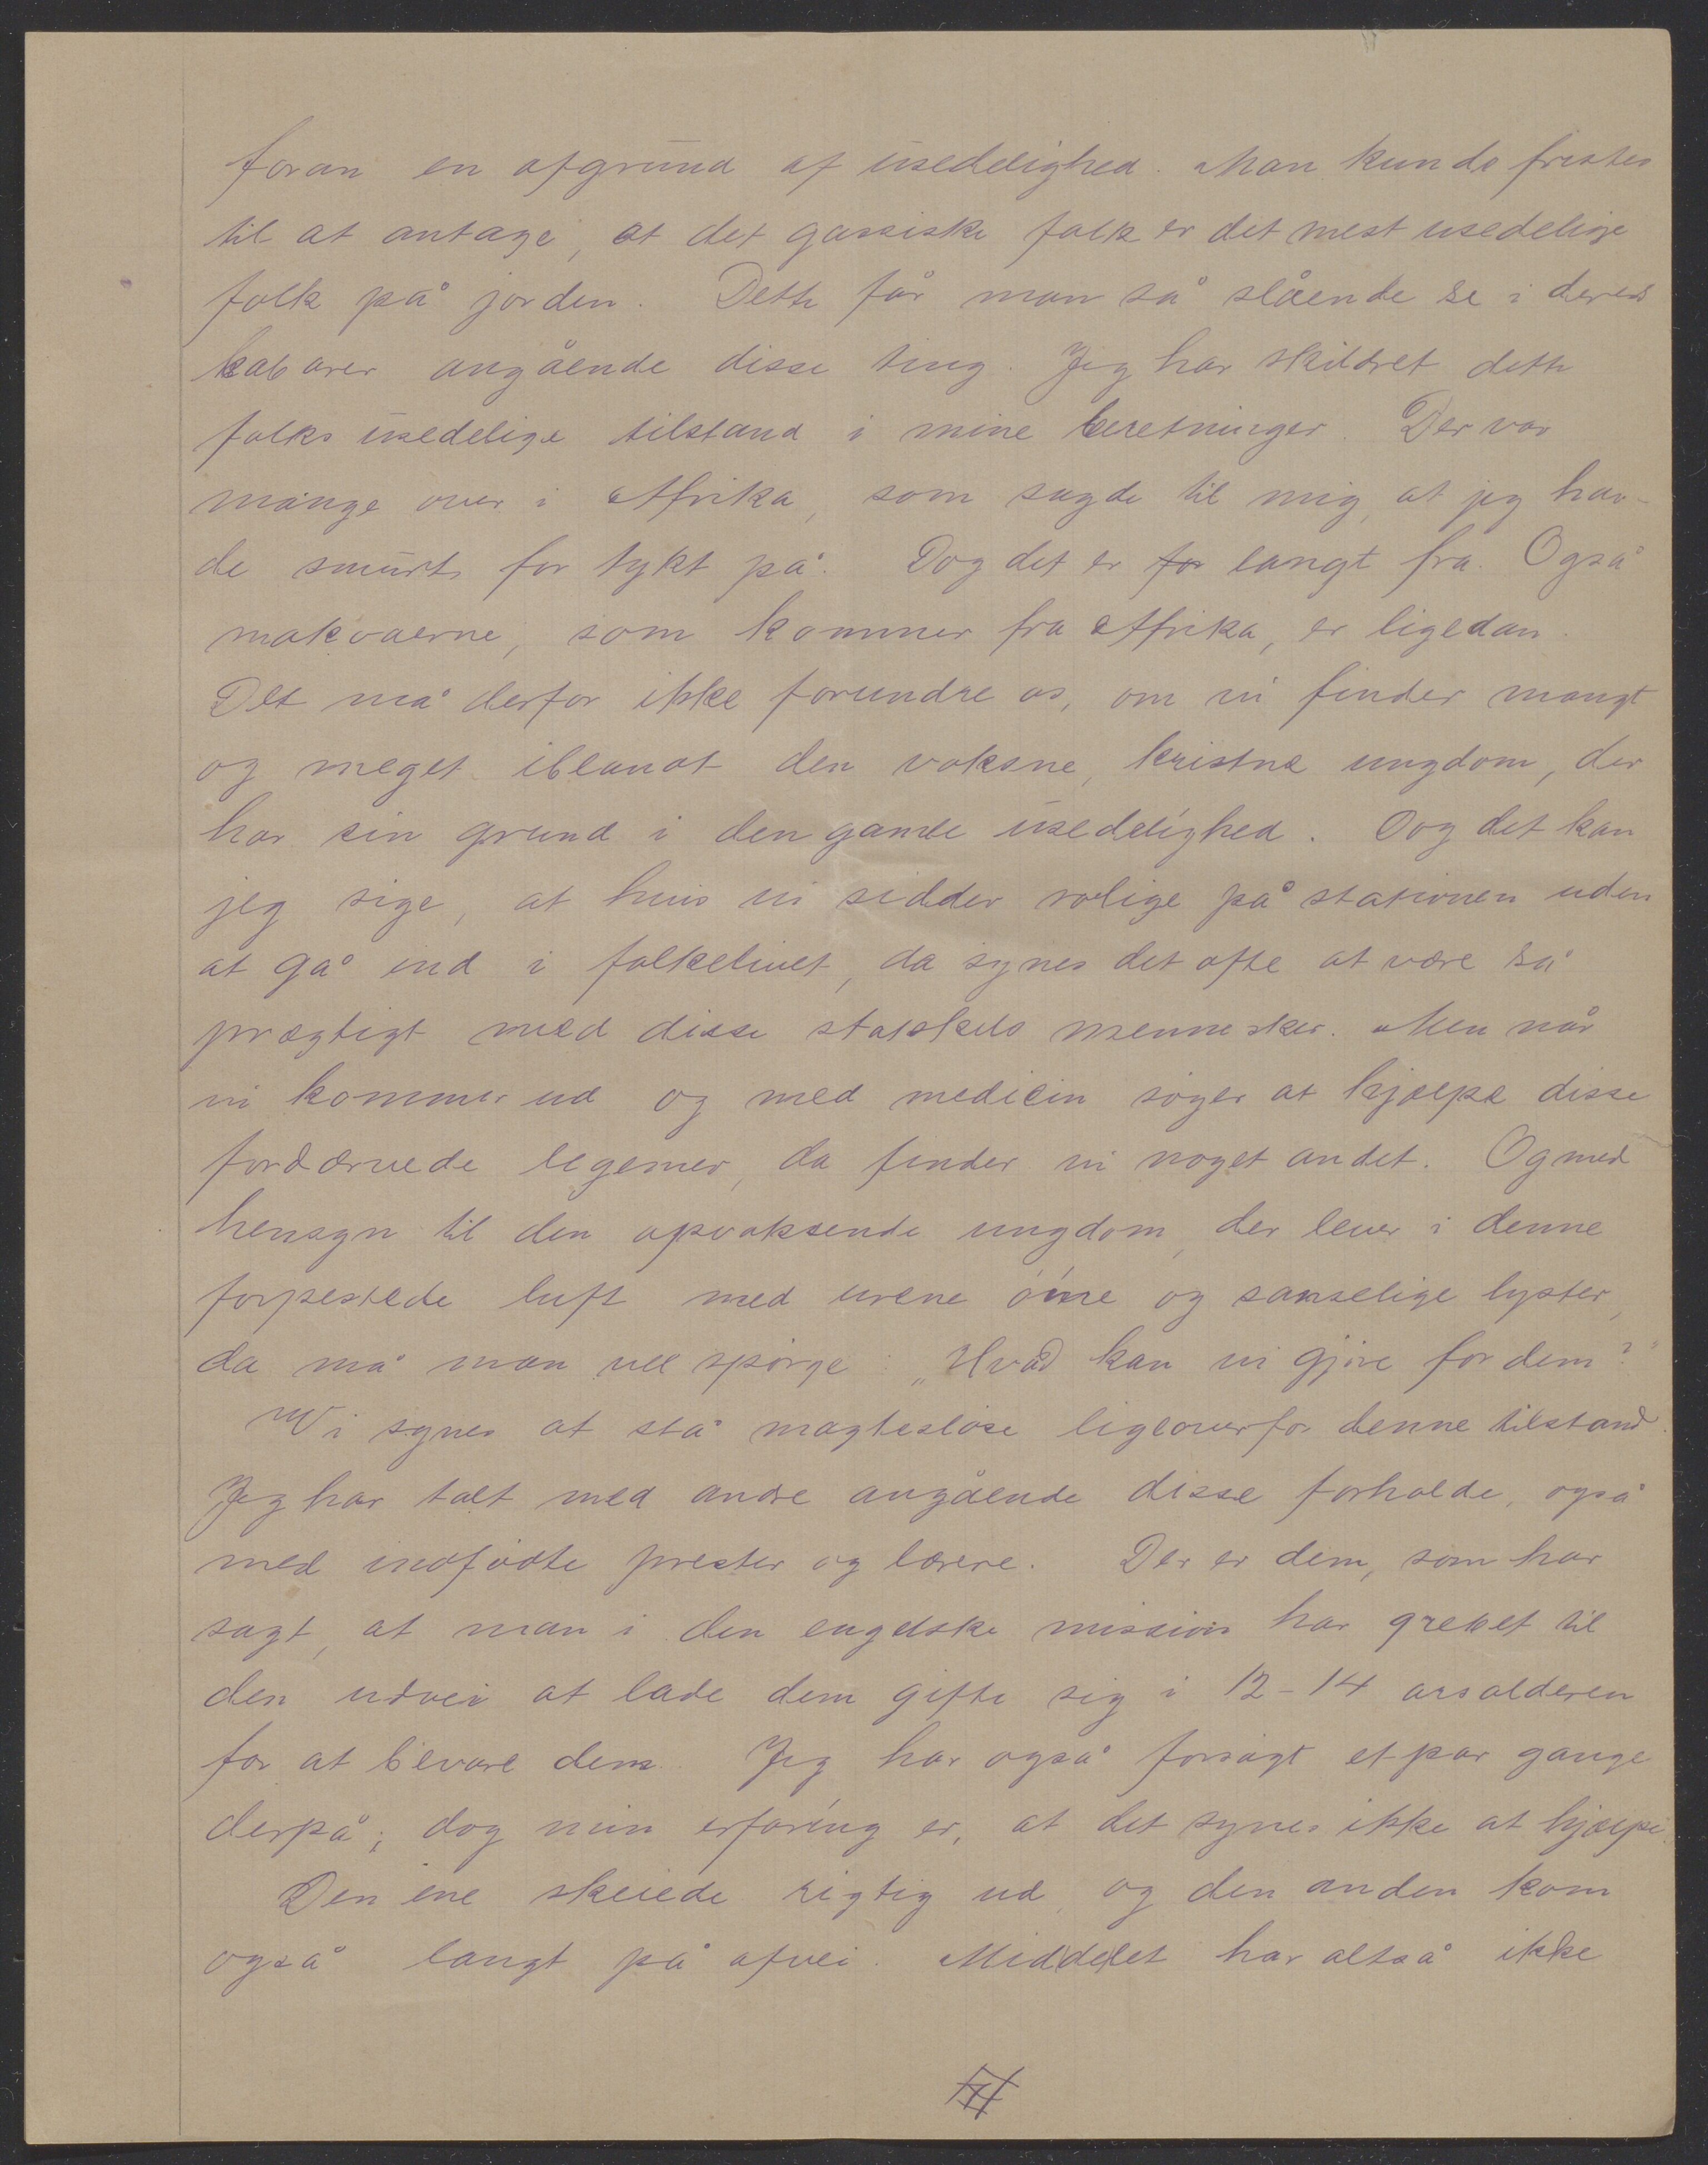 foran en afgrund af usedelighed. Man kunde fristes
til at antage, at det gassiske folk er det mest usedelige
folk på jorden. Dette får man så slående se i deres
kabarer angående disse ting. Jeg har skildret dette
folks usedelige tilstand i mine beretninger. Der var
mange over i Afrika, som sagde til mig, at jeg hav-
de smurt for tykt på. Dog det er for langt fra. Også
makoaerne, som kommer fra Afrika, er ligedan.
Det må derfor ikke forundre os, om vi finder mangt
og meget iblandt den voksne, kristne ungdom, der
har sin grund i den gamle usedelighed. Dog det kan
jeg sige, at hvis vi sidder rolige på stationen uden
at gå ind i folkelivet, da synes det ofte at være så
prægtigt med disse stakkels mennesker. Men når
vi kommer ud og med medicin söger at hjælpe disse
fordærvede legemer, da finder vi noget andet. Og med
hensyn til den opvoksende ungdom, der lever i denne
forpestede luft med urene öine og sanselige lyster,
da må man vel spörge: „Hvad kan vi gjöre for dem?"
Vi synes at stå magteslöse ligeoverfor denne tilstand.
Jeg har talt med andre angående disse forholde, også
med indfödte prester og lærere. Der er dem, som har
sagt, at man i den engelske mission har grebet til
den udvei at lade dem gifte sig i 12-14 arsalderen
for at bevare dem. Jeg har også forsögt et par gange
derpå; dog min erfaring er, at det synes ikke at hjælpe.
Den ene skeiede rigtig ud, og den anden kom
også langt på afvei. Middelet har altså ikke